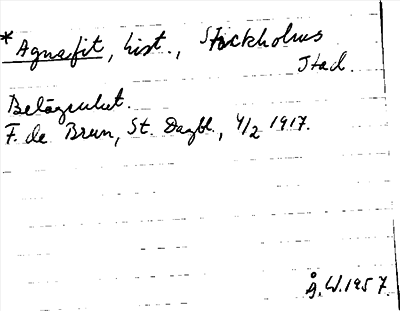 *Agnafit, hist., Stockholms
Stad.
Beläget.
F. de Brun, St. Dagbl., 4/2 1917.
Å. W. 1957.